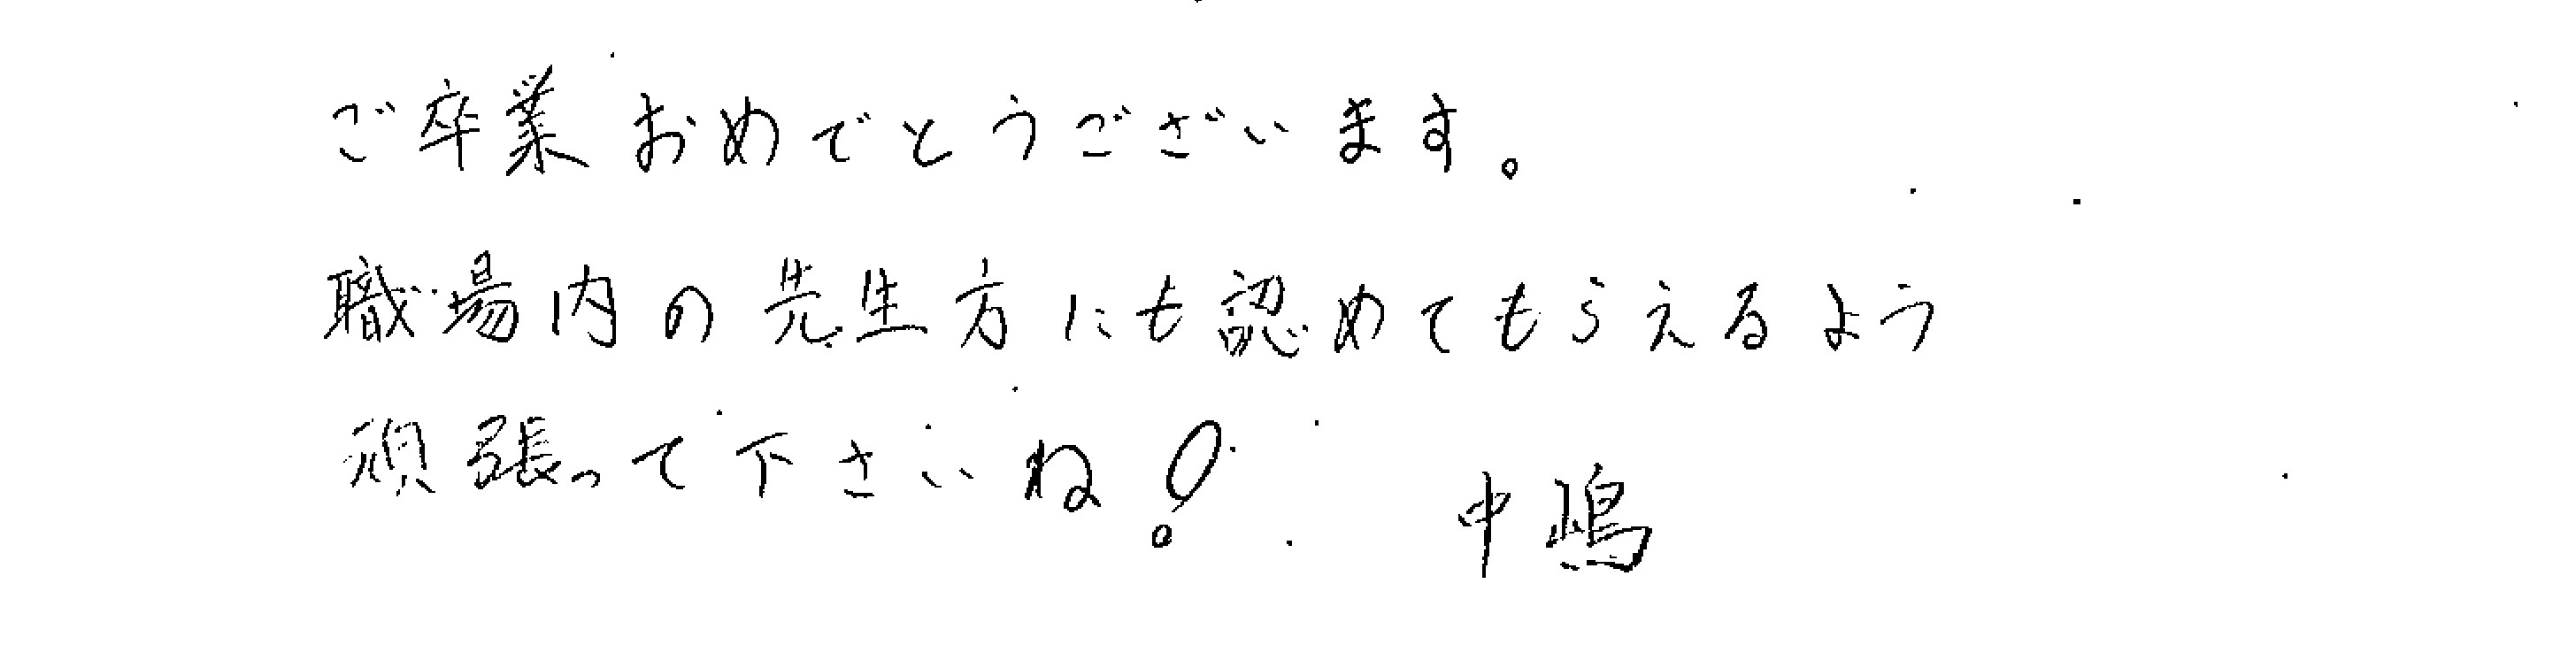 ご卒業おめでとうございます。
職場内の先生方にも認めてもらえるよう
頑張って下さいね!
中嶋